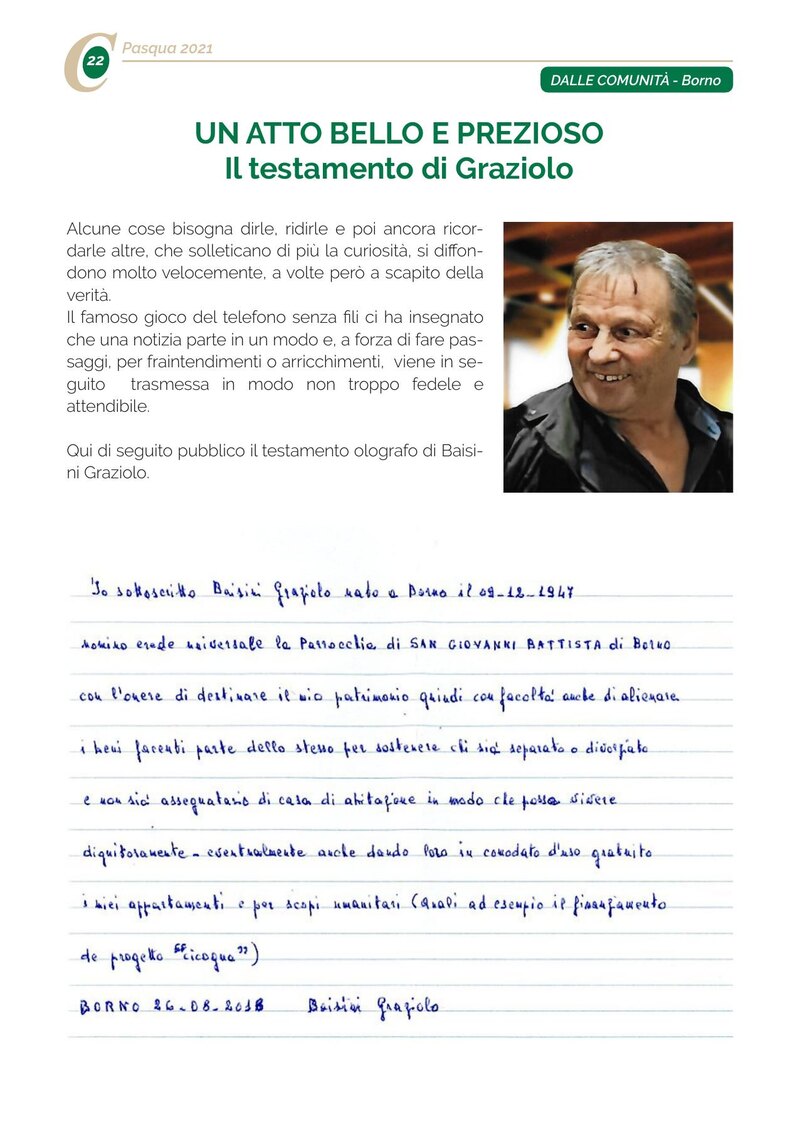 22
Pasqua 2021
DALLE COMUNITÀ - Borno
UN ATTO BELLO E PREZIOSO
Il testamento di Graziolo
Alcune cose bisogna dirle, ridirle e poi ancora ricor-
darle altre, che solleticano di più la curiosità, si diffon-
dono molto velocemente, a volte però a scapito della
verità.
Il famoso gioco del telefono senza fili ci ha insegnato
che una notizia parte in un modo e, a forza di fare pas-
saggi, per fraintendimenti o arricchimenti, viene in se-
guito trasmessa in modo non troppo fedele e
attendibile.
Qui di seguito pubblico il testamento olografo di Baisi-
ni Graziolo.
Io sottoscritto Baisini Graziolo nato a Borno il 09-12-1947
nomino erede universale la Parrocchia di SAN GIOVANNI BATTISTA di Borno
con l'onere di destinare il mio patrimonio quindi con facolta' anche di alienare
i beni facenti parte dello stesso per sostenere chi sia' separato o divorziato
e non sia' assegnatario di casa di abitazione in modo che possa vivere
dignitosamente - eventualmente anche dando loro in comodato d'uso gratuito
i miei appartamenti e per scopi umanitari (quali ad esempio il finanziamento
de progetto "cicogna")
BORNO 26-08-2018 Baisini Graziolo